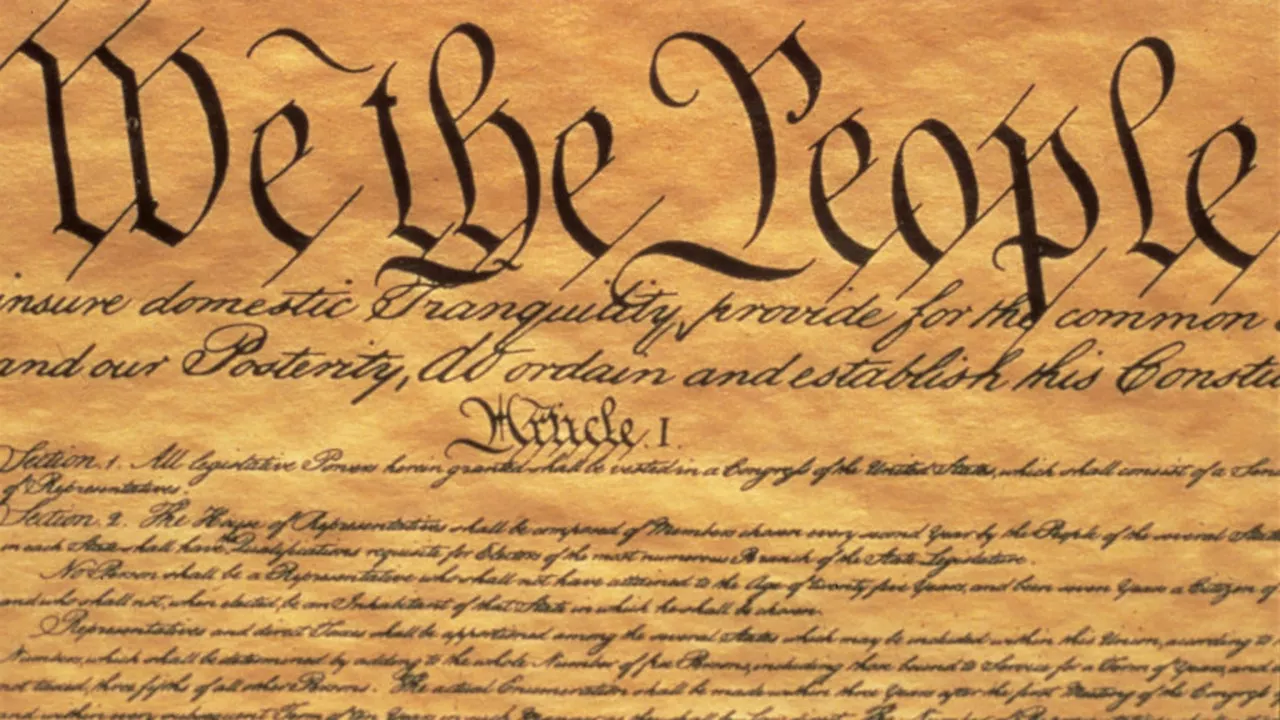 We the People
insure domestic Tranquility, provide for the common
and our Posterity, do ordain and establish this Constit
Article. I.
Section. 1. All legislative Powers herein granted shall be vested in a Congress of the United States, which shall consist of a Sen
of Representatives.
Section. 2. The House of Representatives shall be composed of Members chosen every second Year by the People of the several States
in each State shall have Qualifications requisite for Electors of the most numerous Branch of the State Legislature.
No Person shall be a Representative who shall not have attained to the Age of twenty five Years, and been seven Years a Citizen of
and who shall not, when elected, be an Inhabitant of that State in which he shall be chosen.
Representatives and direct Taxes shall be apportioned among the several States which may be included within this Union, according to
Numbers, which shall be determined by adding to the whole Number of free Persons, including those bound to Service for a Term of Years, and
not taxed, three fifths of all other Persons. The actual Enumeration shall be made within three Years after the first Meeting of the Congress
and within every subsequent Term of ten Years, in such Manner as they shall by Law direct. The Number of